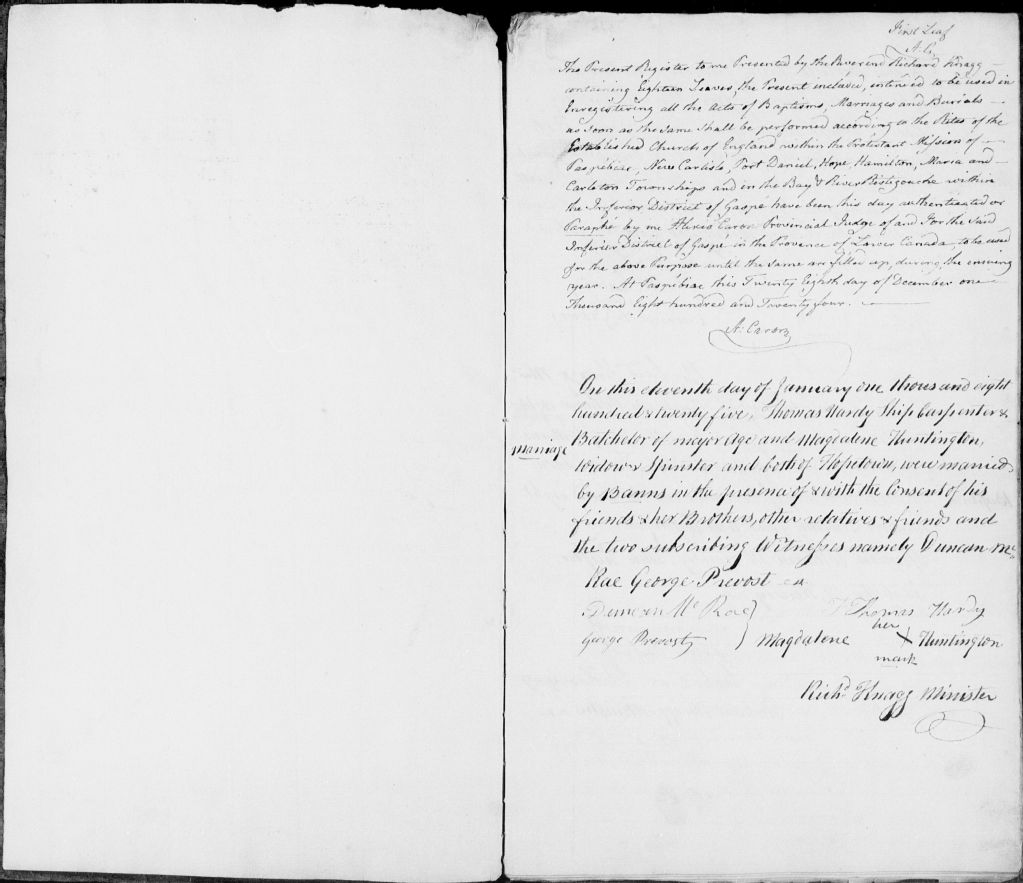 First Leaf
A. C.
The Present Register to me Presented by the Reverend Richard Knagg
containing Eighteen Leaves, the Present inclused, intened to be used in
Enregistering all the Acts of Baptisms, Marriages and Burials
as soon as the same shall be performed according to the Rites of the
Established Church of England within the Protestant Mission of
Paspébiac, New Carlisle, Port Daniel, Hope, Hamilton, Maria and
Carleton Townships and in the Bay & River Ristigouche within
the Inferior District of Gaspé have been this day authenticated or
Paraphé by me Alexis Caron Provincial Judge of and for the said
Inferior District of Gaspé in the Province of Lower Canada, to be used
for the above Purpose until the same are filled up, during the ensuing
year. At Paspébiac this Twenty Eighth day of December one
Thousand Eight hundred and Twenty four.
A. Caron
On this eleventh day of January one thousand eight
hundred & twenty five, Thomas Hardy Ship Carpenter &
Batchelor of mayor Age and Magdalene Huntington,
Marriage
widow & Spinster and both of Hopetown, were married
by Banns in the presence of & with the Consent of his
friends & her Brothers, other relatives & friends and
the two subscribing Witnesses namely Duncan Mc
Rae George Prevost
Duncan Mc Rae } Thomas Hardy
George Prevost } Magdalene her X mark Huntington
Richd. Knagg Minister